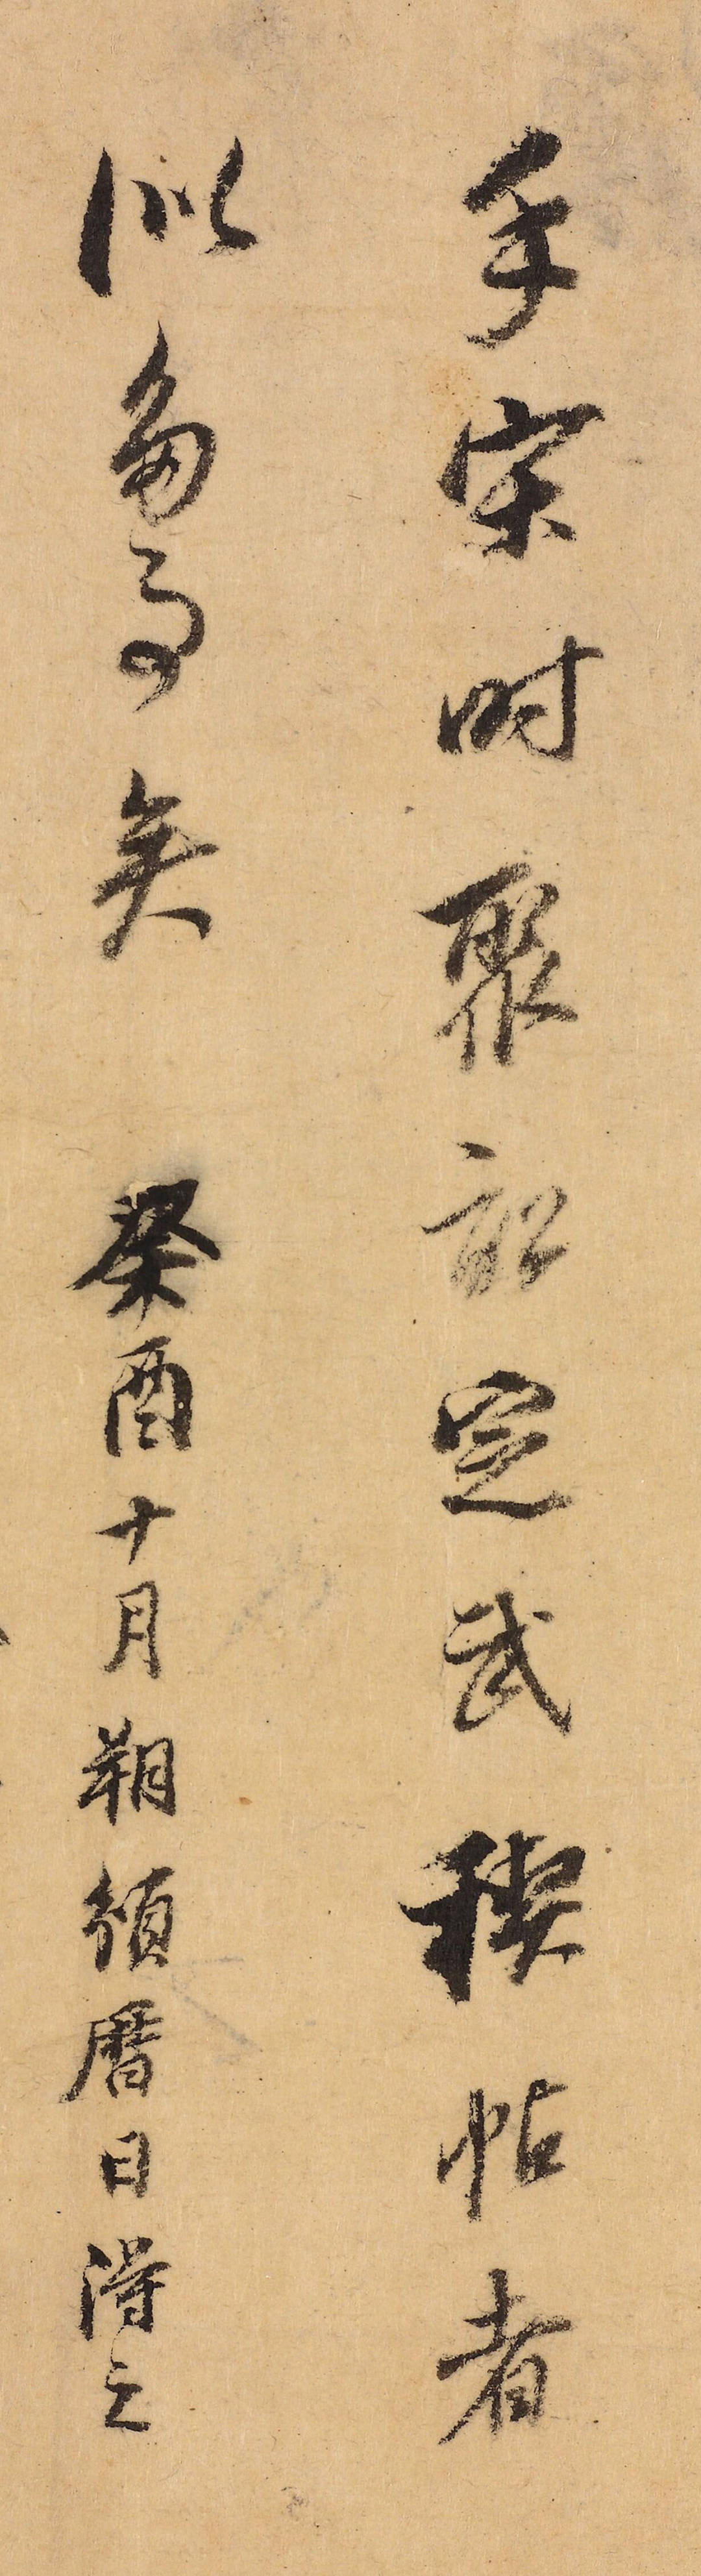 手宋時聚訟定武禊帖者
似多事矣 癸酉十月朔頒曆日得之